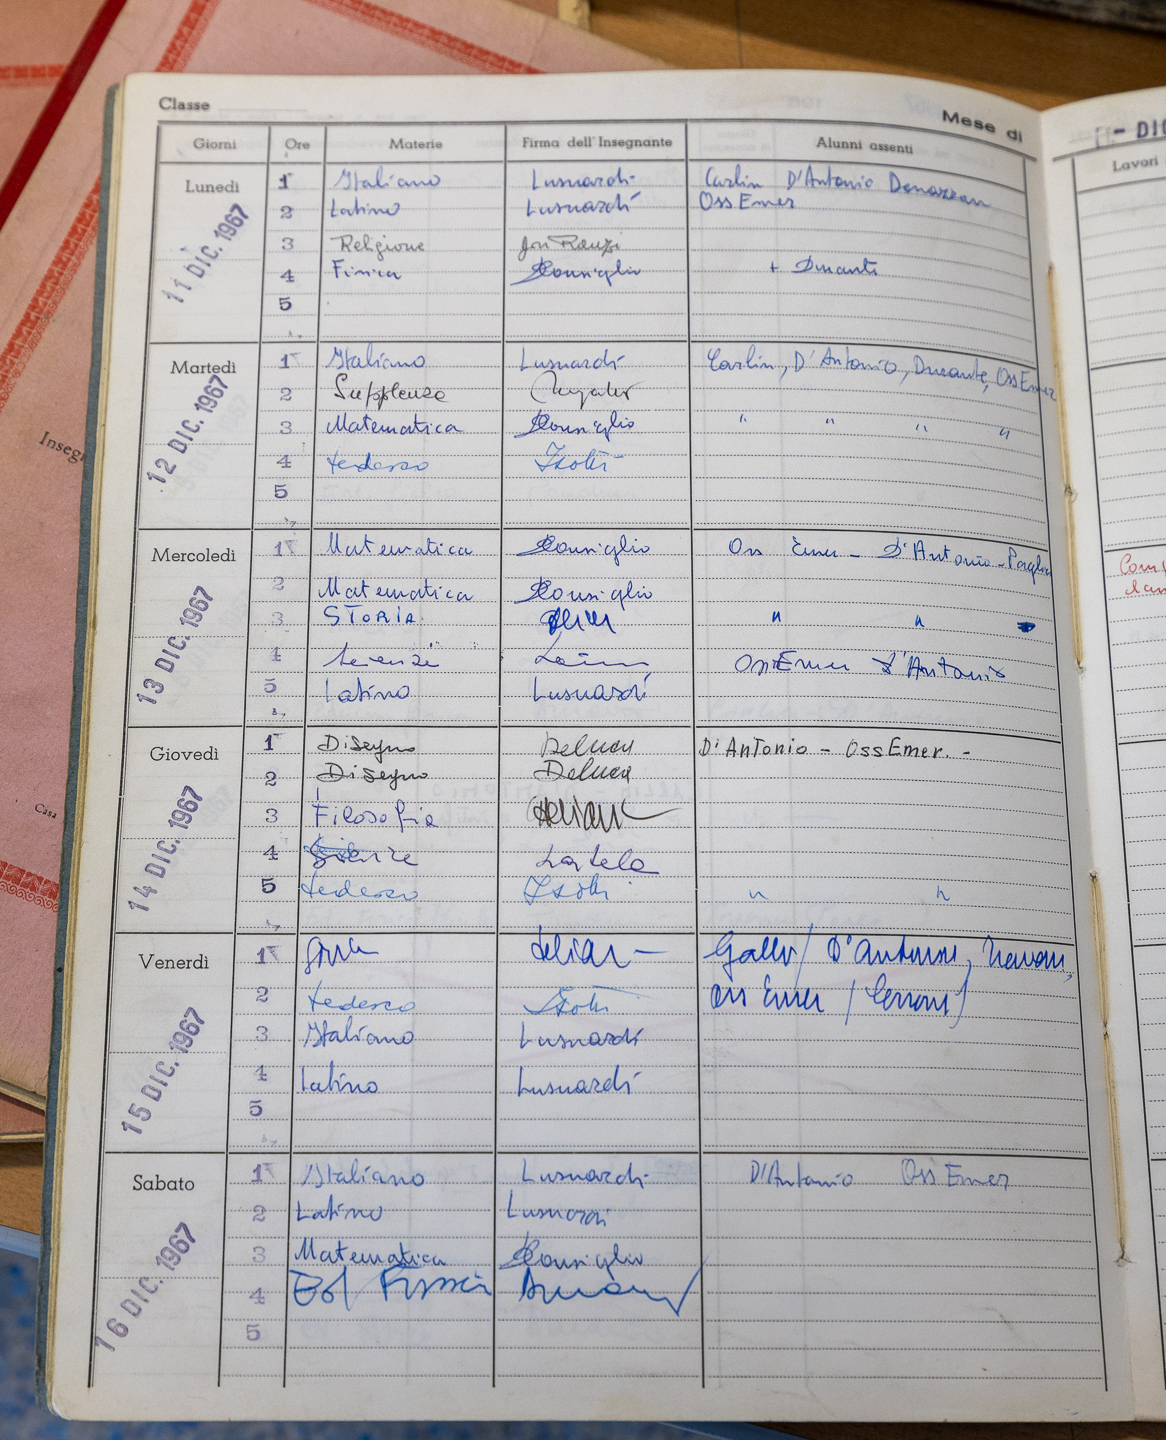 Classe
Mese di
Giorni Ore Materie Firma dell'Insegnante Alunni assenti
Lunedì 1 Italiano Lusnardi Carlin D'Antonio Donazzan
2 Latino Lusnardi Oss Emer
3 Religione
4 Fisica Consiglio + Durante
5
11 DIC. 1967
Martedì 1 Italiano Lusnardi Carlin, D'Antonio, Durante, Oss Emer
2 Supplenza
3 Matematica Consiglio " " " "
4 tedesco
5
12 DIC. 1967
Mercoledì 1 Matematica Consiglio Oss Emer - D'Antonio - Paglia
2 Matematica Consiglio
3 STORIA " "
4 Scienze Oss Emer D'Antonio
5 Latino Lusnardi
13 DIC. 1967
Giovedì 1 Disegno Deluca D'Antonio - Oss Emer. -
2 Disegno Deluca
3 Filosofia
4 Scienze
5 tedesco " "
14 DIC. 1967
Venerdì 1 Gallo / D'Antonio,
2 tedesco Oss Emer
3 Italiano Lusnardi
4 Latino Lusnardi
5
15 DIC. 1967
Sabato 1 Italiano Lusnardi D'Antonio Oss Emer
2 Latino Lusnardi
3 Matematica Consiglio
4
5
16 DIC. 1967
DIC
Lavori
Insegn
Casa